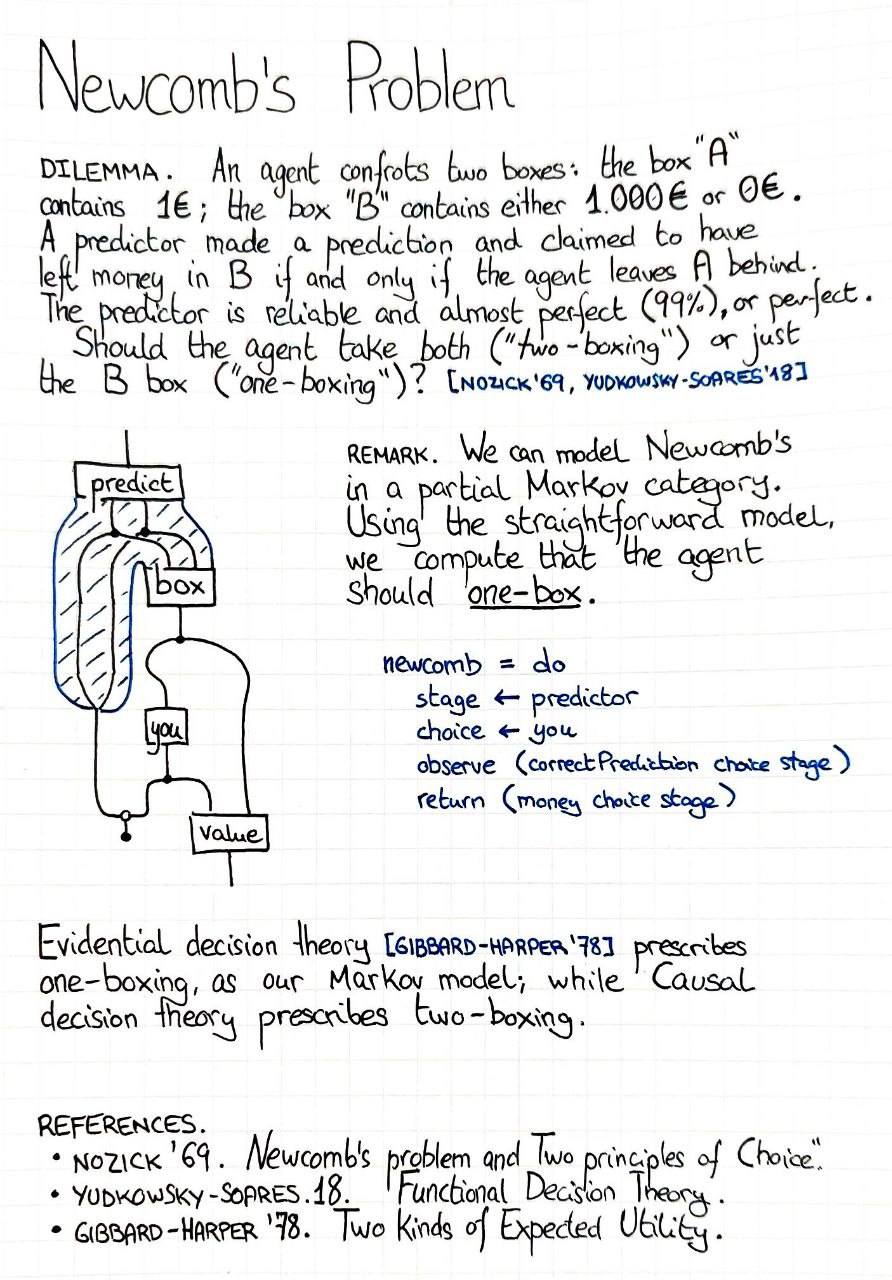 Newcomb's Problem
DILEMMA. An agent confrots two boxes: the box "A"
contains 1€; the box "B" contains either 1.000€ or 0€.
A predictor made a prediction and claimed to have
left money in B if and only if the agent leaves A behind.
The predictor is reliable and almost perfect (99%), or perfect.
Should the agent take both ("two-boxing") or just
the B box ("one-boxing")? [NOZICK'69, YUDKOWSKY-SOARES'18]
predict
box
you
value
REMARK. We can model Newcomb's
in a partial Markov category.
Using the straightforward model,
we compute that the agent
should one-box.
newcomb = do
stage ← predictor
choice ← you
observe (correctPrediction choice stage)
return (money choice stage)
Evidential decision theory [GIBBARD-HARPER'78] prescribes
one-boxing, as our Markov model; while Causal
decision theory prescribes two-boxing.
REFERENCES.
• NOZICK '69. Newcomb's problem and Two principles of Choice".
• YUDKOWSKY-SOARES.18. Functional Decision Theory.
• GIBBARD-HARPER '78. Two Kinds of Expected Utility.